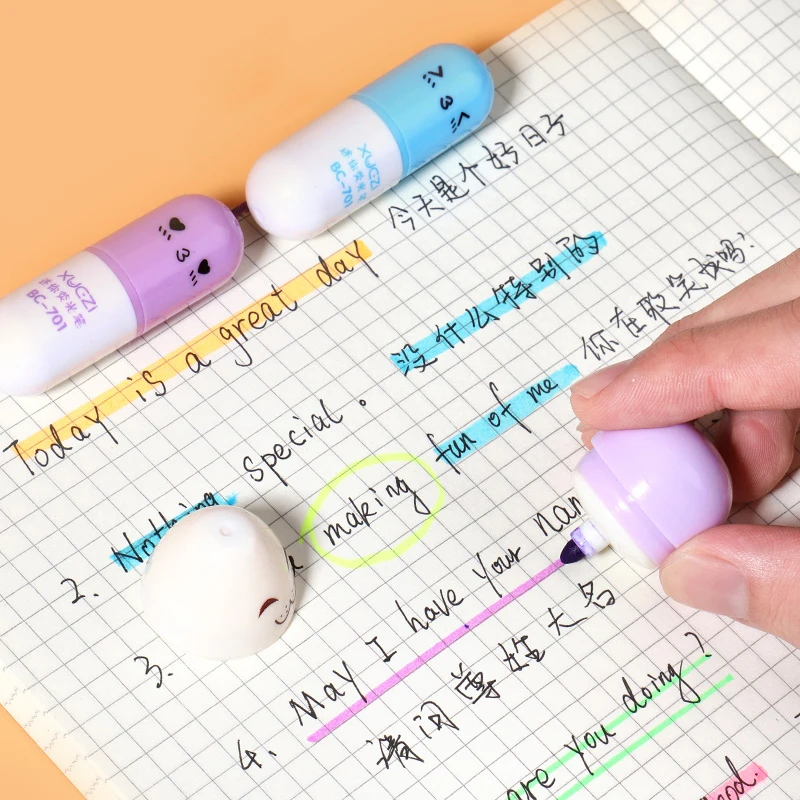 XUGZI
迷你荧光笔
BC-701
XUGZI
迷你荧光笔
BC-701
Today is a great day 今天是个好日子
2. Nothing special. 没什么特别的
3. making fun of me 你在取笑我吗?
4. May I have your nam
请问尊姓大名
are you doing?